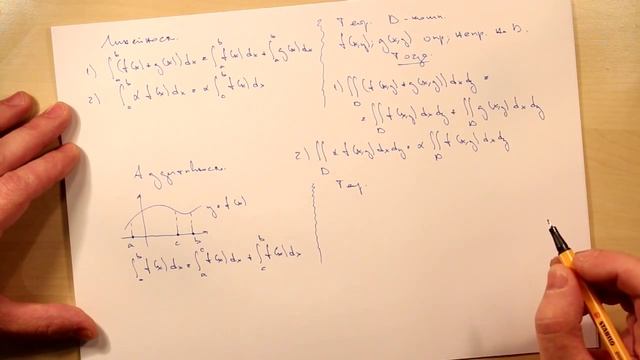 Линейность.
1) ∫_a^b (f(x)+g(x))dx = ∫_a^b f(x)dx + ∫_a^b g(x)dx
2) ∫_a^b α f(x)dx = α ∫_a^b f(x)dx
Аддитивность.
y=f(x)
a c b
∫_a^b f(x)dx = ∫_a^c f(x)dx + ∫_c^b f(x)dx
Теор. D-комп.
f(x,y); g(x,y) опр; непр. на D.
Тогда
1) ∬_D (f(x,y)+g(x,y))dxdy =
= ∬_D f(x,y)dxdy + ∬_D g(x,y)dxdy
2) ∬_D α f(x,y)dxdy = α ∬_D f(x,y)dxdy
Теор.
STABILO